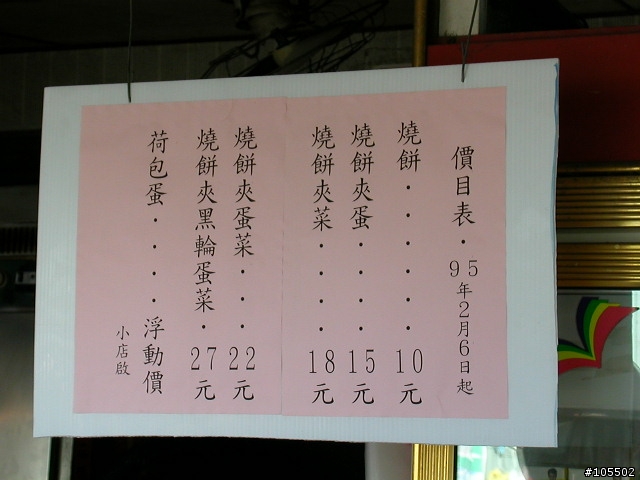 價目表．95年2月6日起
燒餅．．．．．10元
燒餅夾蛋．．．15元
燒餅夾菜．．．18元
燒餅夾蛋菜．．．22元
燒餅夾黑輪蛋菜．27元
荷包蛋．．．．浮動價
小店啟
#105502